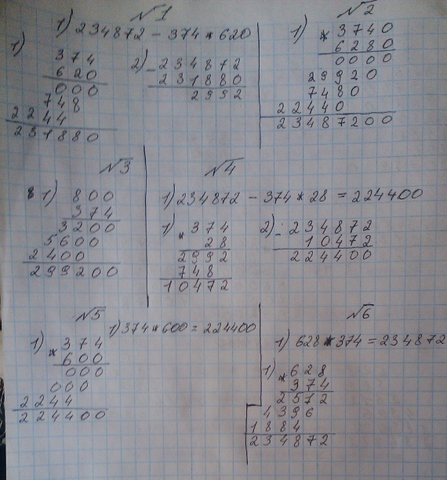 №1
1) 234872 - 374 * 620
1)
374
620
000
748
2244
231880
2) - 234872
231880
2992
№2
1) * 3740
6280
0000
29920
7480
22440
23487200
№3
1) 800
374
3200
5600
2400
299200
№4
1) 234872 - 374 * 28 = 224400
1) * 374
28
2992
748
10472
2) - 234872
10472
224400
№5
1) 374 * 600 = 224400
1) * 374
600
000
000
2244
224400
№6
1) 628 * 374 = 234872
1) * 628
374
2572
4396
1884
234872